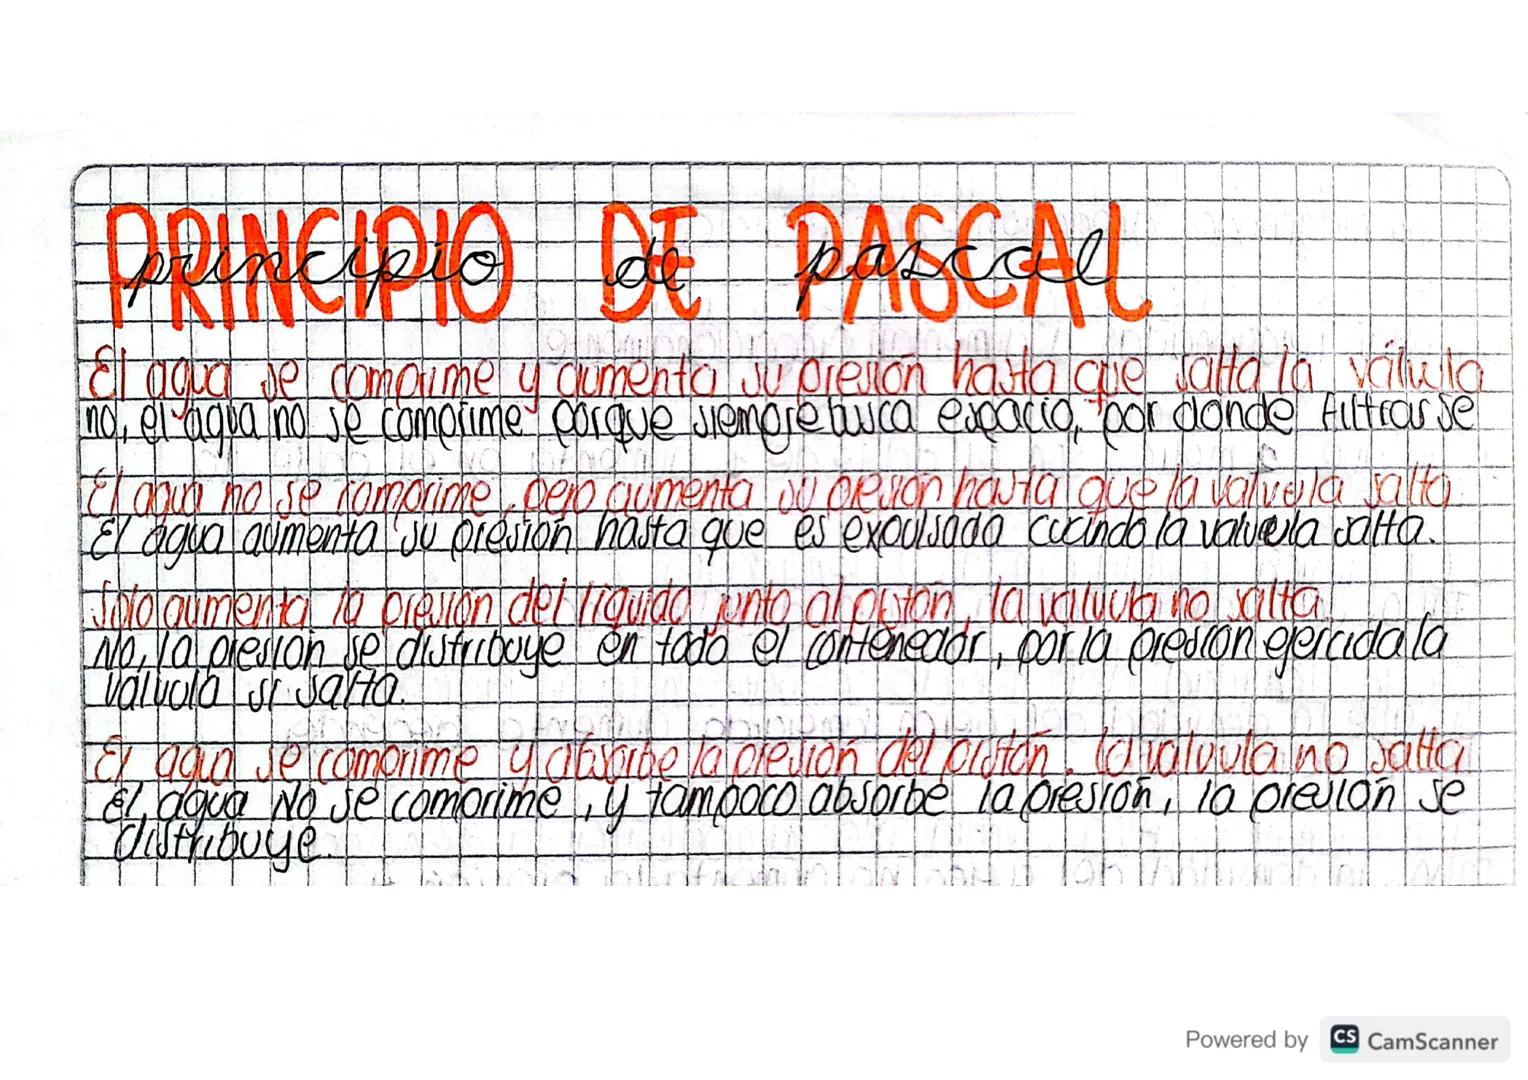 PRINCIPIO DE PASCAL
principio de pascal
El agua se comprime y aumenta su presión hasta que salta la válvula
no, el agua no se comprime porque siempre busca espacio, por donde filtrarse
El agua no se comprime, pero aumenta su presión hasta que la valvula salta
El agua aumenta su presión hasta que es expulsada cuando la valvula salta.
Solo aumenta la presión del líquido junto al pistón, la valvula no salta
No, la presión se distribuye en todo el contenedor, por la presión ejercida la
valvula si salta.
El agua se comprime y absorbe la presión del pistón, la valvula no salta
El agua NO se comprime, y tampoco absorbe la presión, la presión se
distribuye.
Powered by CS CamScanner